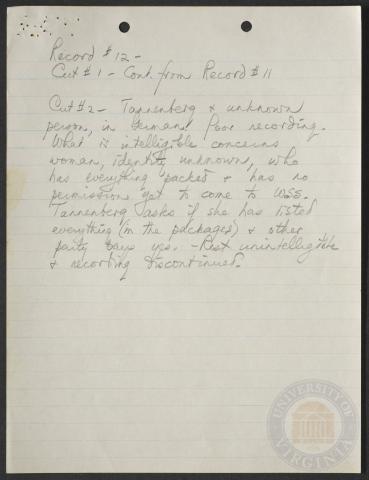 Record #12 -
Cut #1 - Cont from Record #11
Cut #2 - Tannenberg & unknown
person, in German. Poor recording.
What is intelligible concerns
woman, identity unknown, who
has everything packed & has no
permission yet to come to
Tannenberg asks if she has listed
everything (in the packages) & other
party says yes. - Rest unintelligible
& recording discontinued.
UNIVERSITY OF VIRGINIA